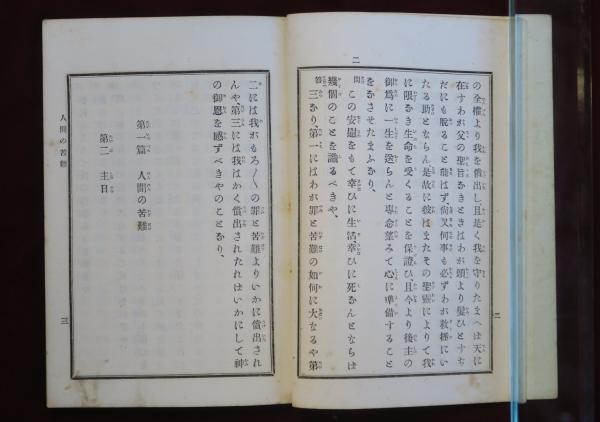 二
の全權より我を償出し、且是く我を守りたまへば天に
在すわが父の聖旨なきときはわが頭より髮ひとすぢ
だにも脱ること能はず、尙又何事も必ずわが救極にい
たる助とならん是故に彼はまたその聖靈によりて我
に限なき生命を受くることを保證ひ、且今より後主の
御爲に一生を送らんと專念望みて心に準備すること
をなさせたまふなり、
問 この安慰をもて幸ひに生活、幸ひに死なんとならば
幾個のことを識るべきや、
答 三なり第一にはわが罪と苦難の如何に大なるや第
二
二には我がもろ〱の罪と苦難よりいかに償出され
んや第三には我はかく償出されたればいかにして神
の御恩を感ずべきやのことなり、
第一篇 人間の苦難
第二 主日
人間の苦難
三